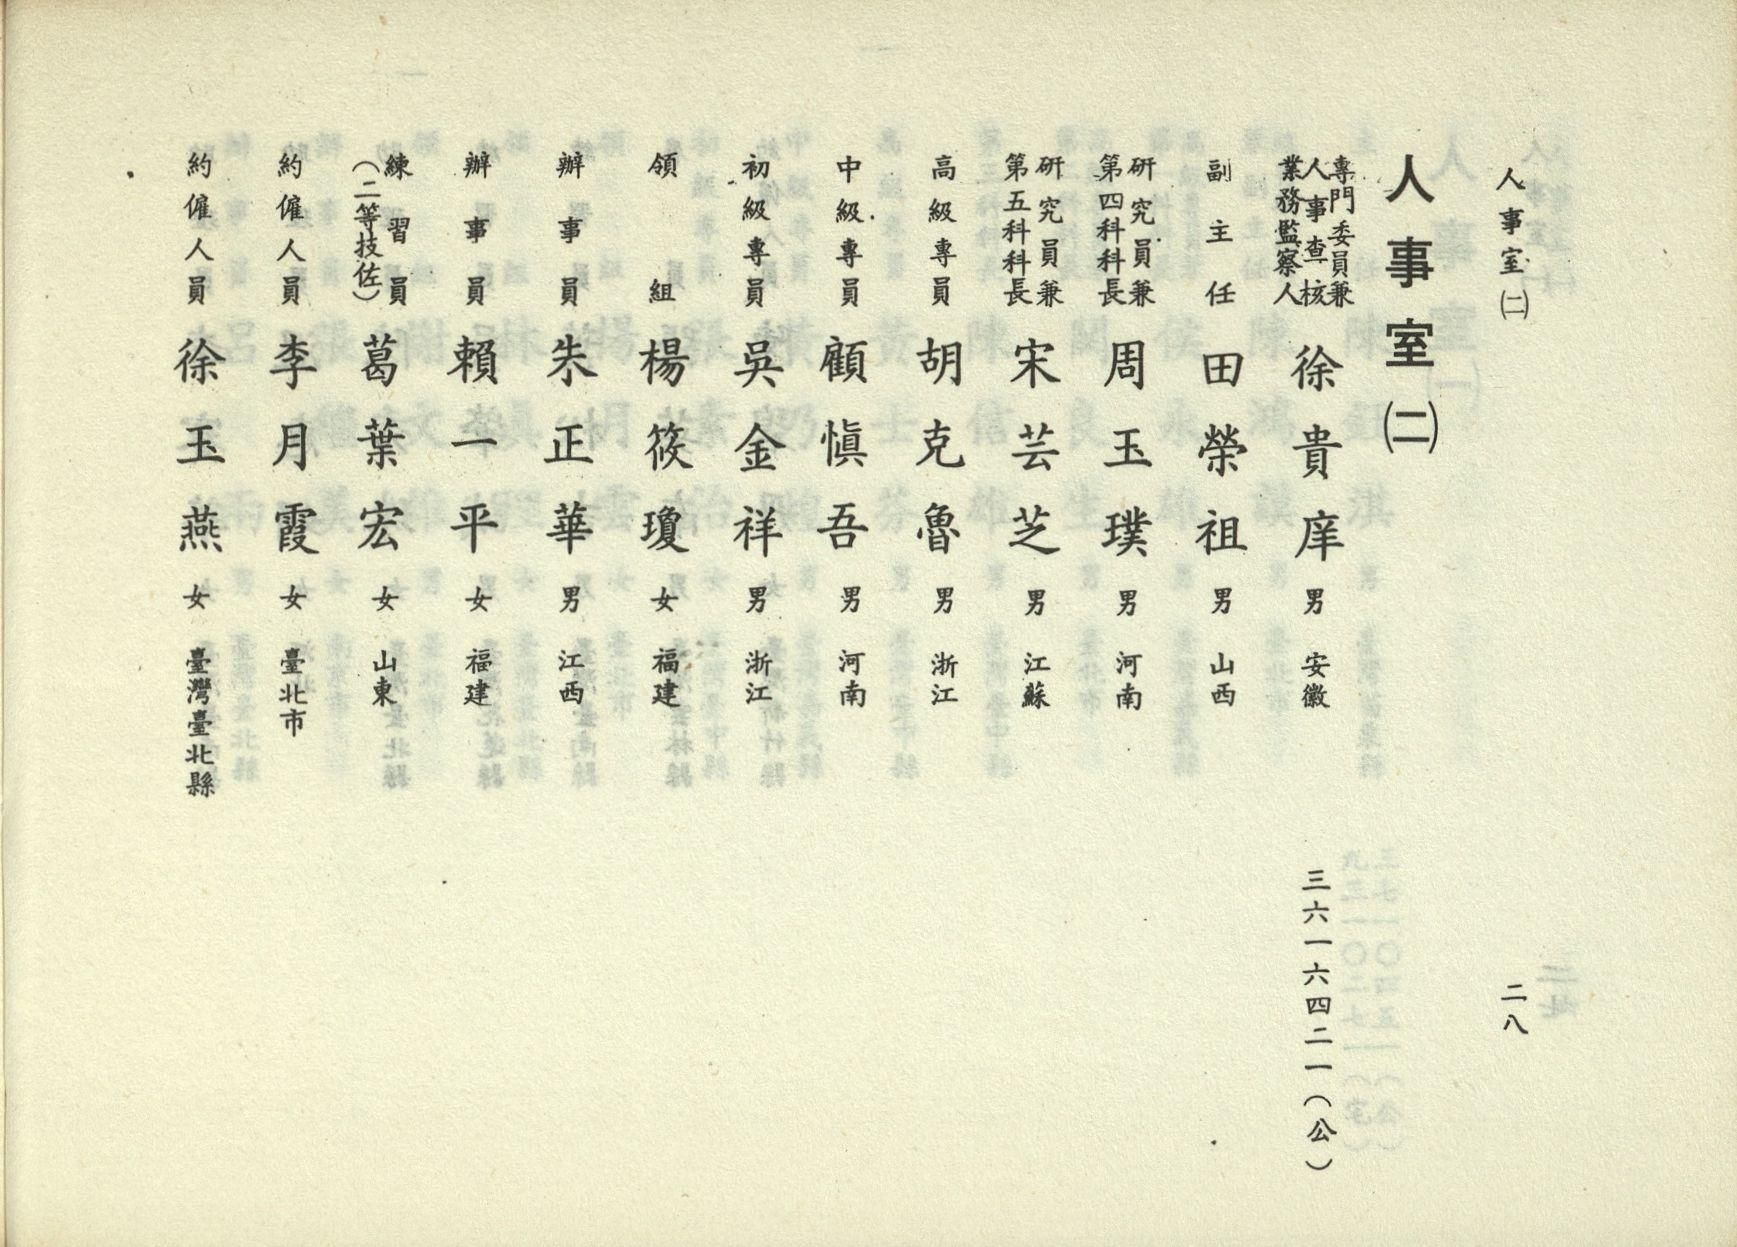 人事室㈡
二八
人事室㈡
專門委員兼人事查核業務監察人 徐貴庠 男 安徽 三六一六四二一（公）
副主任 田榮祖 男 山西
研究員兼第四科科長 周玉璞 男 河南
研究員兼第五科科長 宋芸芝 男 江蘇
高級專員 胡克魯 男 浙江
中級專員 顧愼吾 男 河南
初級專員 吳金祥 男 浙江
領組 楊筱瓊 女 福建
辦事員 朱正華 男 江西
辦事員 賴一平 女 福建
練習員（二等技佐） 葛葉宏 女 山東
約僱人員 李月霞 女 臺北市
約僱人員 徐玉燕 女 臺灣臺北縣